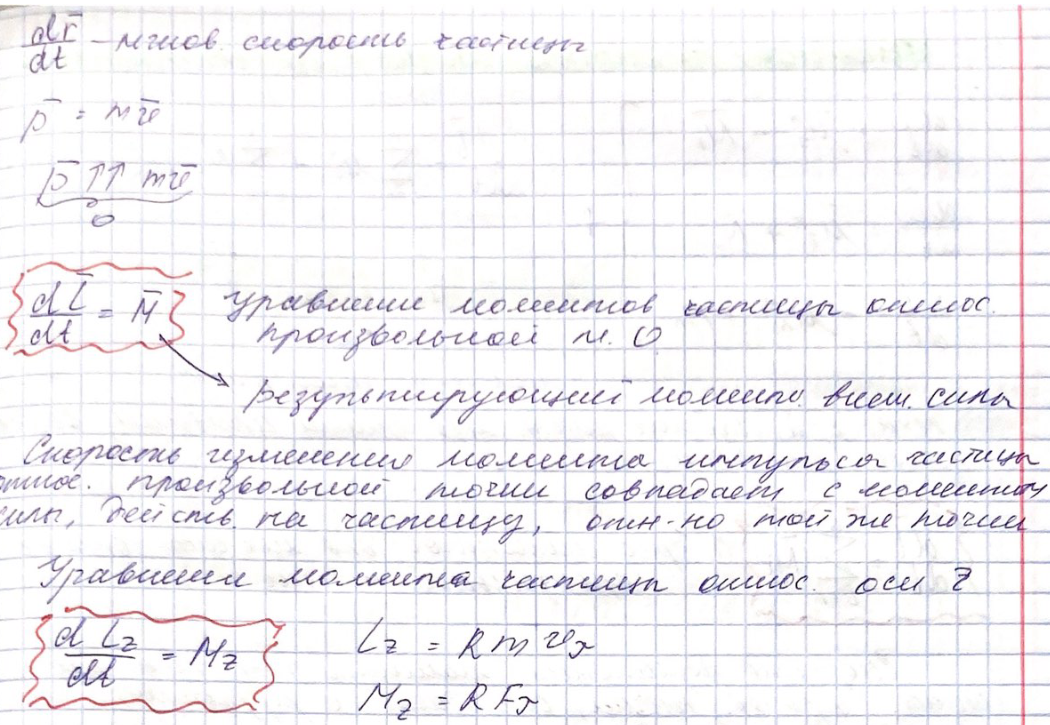 dr̄/dt - мгнов. скорость частицы
p̄ = mῡ
p̄ ↑↑ mῡ
0
dL̄/dt = M̄ уравнение моментов частицы относ.
произвольной т. О
результирующий момент внеш. силы
Скорость изменения момента импульса частицы
относ. произвольной точки совпадает с моментом
силы, действ на частицу, отн-но той же точки
Уравнение момента частицы относ. оси Z
dLz/dt = Mz Lz = Rmυx
Mz = RFx